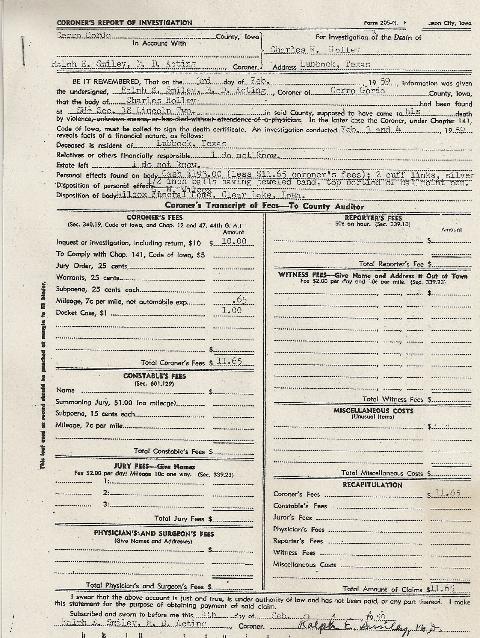 CORONER'S REPORT OF INVESTIGATION
Form 205-M.
Cerro Gordo County, Iowa
For Investigation of the Death of
In Account With
Charles H. Holley
Ralph E. Smiley, M. D. Acting Coroner.
Address Lubbock, Texas
BE IT REMEMBERED, That on the 3rd day of Feb. , 19 59 , information was given
the undersigned, Ralph E. Smiley, M. D. Acting, Coroner of Cerro Gordo County, Iowa,
that the body of Charles Holley had been found
at Sec. 18 Lincoln Twp. in said County, supposed to have come to his death
by violence, attendance of a physician. In the later case the Coroner, under Chapter 141,
Code of Iowa, must be called to sign the death certificate. An investigation conducted Feb. 3 and 4 , 19 59
reveals facts of a financial nature, as follows:
Deceased is resident of Lubbock, Texas
Relatives or others financially responsible I do not know.
Estate left I do not know.
Personal effects found on body Cash $193.00 (less $11.65 coroner's fees); 2 cuff links, silver
balls having jeweled band, top portion of ball point pen.
Disposition of personal effects
Disposition of body Wilcox Funeral Home, Clear Lake, Iowa.
Coroner's Transcript of Fees—To County Auditor
CORONER'S FEES
(Sec. 340.19, Code of Iowa, and Chap. 12 and 47, 44th G. A.)
Amount
Inquest or investigation, including return, $10 $ 10.00
To Comply with Chap. 141, Code of Iowa, $5
Jury Order, 25 cents
Warrants, 25 cents
Subpoena, 25 cents each
Mileage, 7c per mile, not automobile exp. .65
Docket Case, $1 1.00
$
Total Coroner's Fees $ 11.65
CONSTABLE'S FEES
(Sec. 601.129)
Name $
Summoning Jury, $1.00 (no mileage)
Subpoena, 15 cents each
Mileage, 7c per mile
Total Constable's Fees $
JURY FEES—Give Names
Fee $2.00 per day; Mileage 10c one way. (Sec. 339.23)
1: $
2:
3:
Total Jury Fees $
PHYSICIAN'S AND SURGEON'S FEES
(Give Names and Addresses)
$
Total Physician's and Surgeon's Fees $
REPORTER'S FEES
(Sec. 339.13)
Amount
$
Total Reporter's Fee $
WITNESS FEES—Give Name and Address if Out of Town
Fee $2.00 per day and 10c per mile. (Sec. 339.23)
$
Total Witness Fees $
MISCELLANEOUS COSTS
(Unusual Items)
$
Total Miscellaneous Costs $
RECAPITULATION
Coroner's Fees $ 11.65
Constable's Fees
Juror's Fees
Physician's Fees
Reporter's Fees
Witness Fees
Miscellaneous Costs
Total Amount of Claims $11.65
I swear that the above account is just and true, is under authority of law and has not been paid, or any part thereof. I make
this statement for the purpose of obtaining payment of said claim.
Subscribed and sworn to before me this day of Feb.
Ralph E. Smiley, M. D. Acting Coroner. Ralph E. Smiley, M.D.